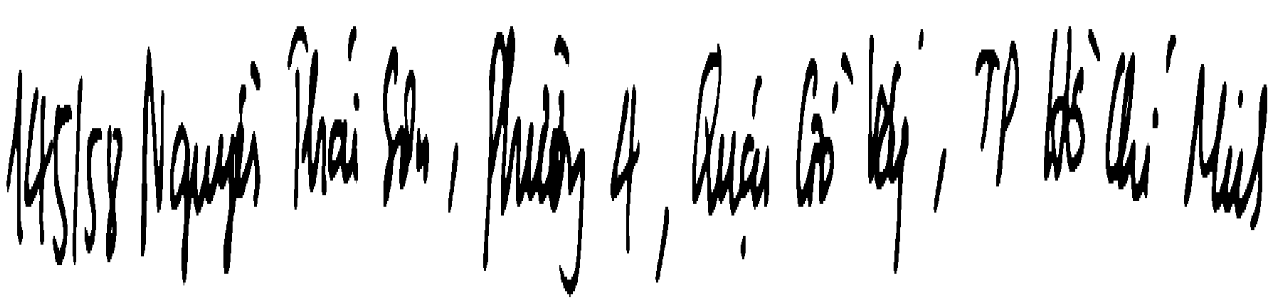 145/58 Nguyễn Thái Sơn, Phường 4, Quận Gò Vấp, TP Hồ Chí Minh